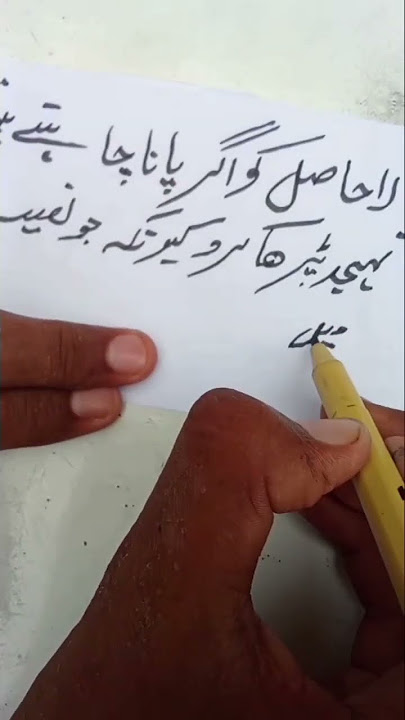 لاحاصل کو اگر پانا چاہتے
تہجد پڑھا کرو کیونکہ جو نصیب
میں